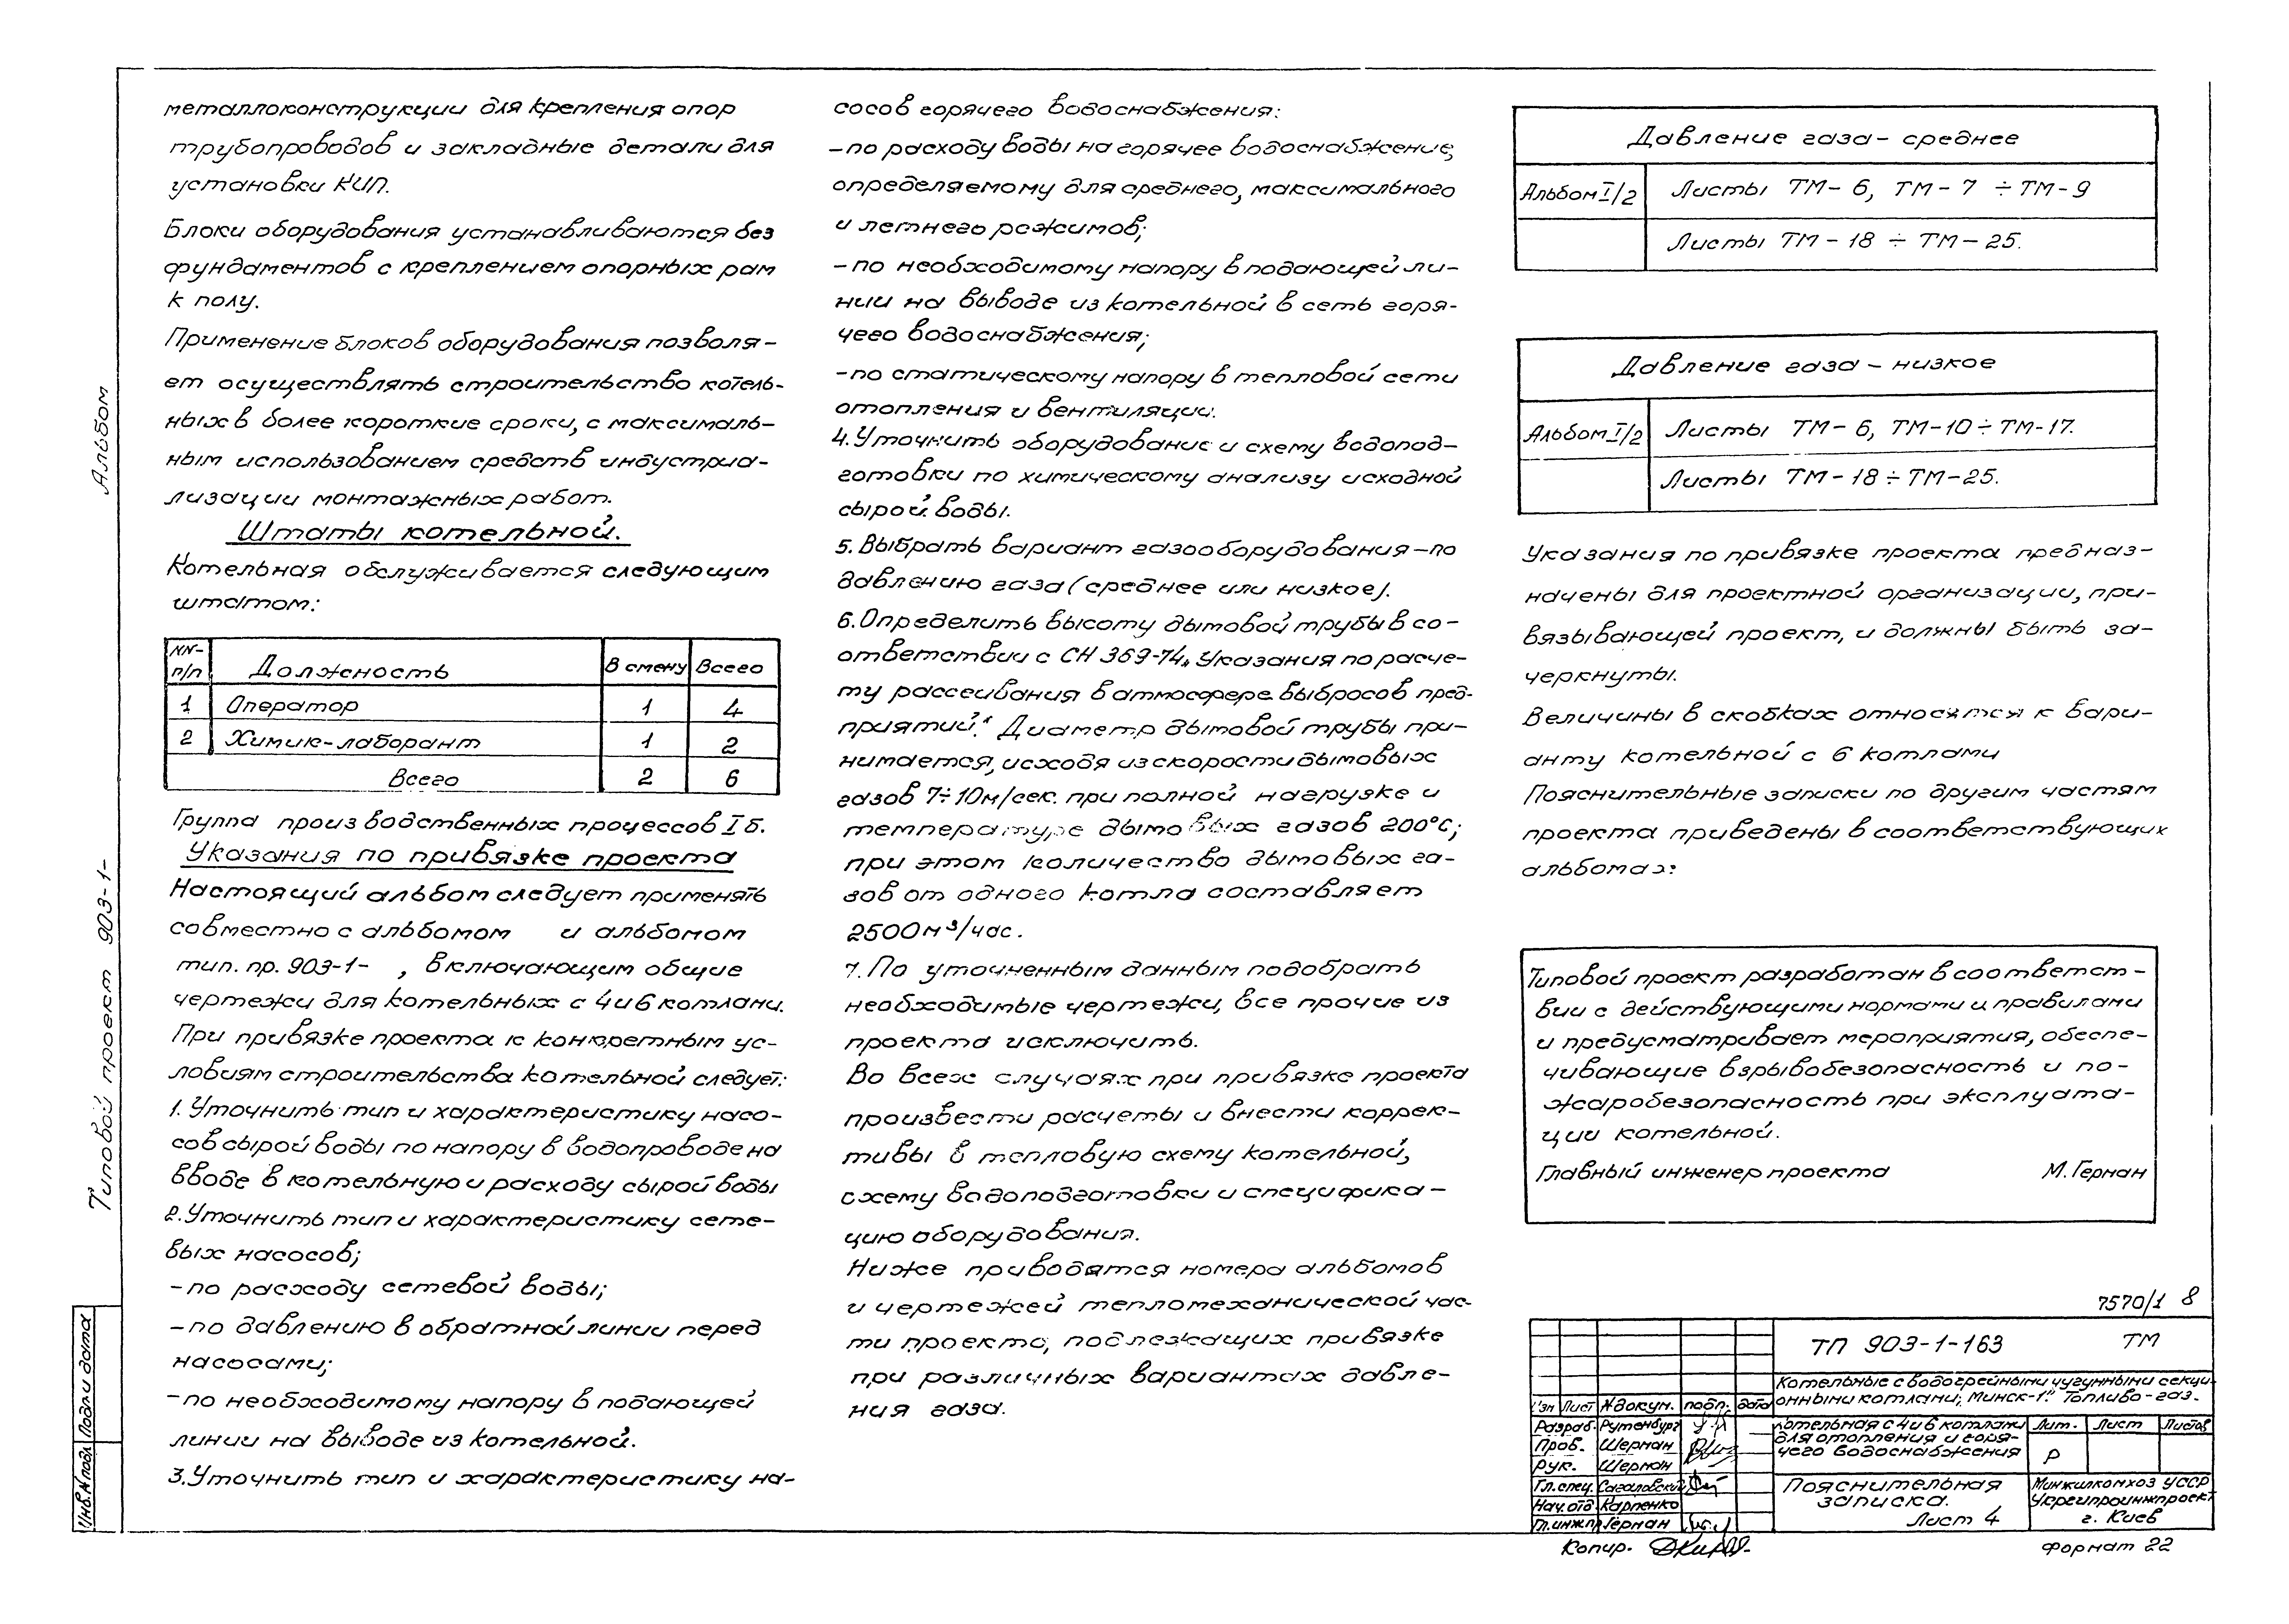 металлоконструкции для крепления опор
трубопроводов и закладные детали для
установки КИП.
Блоки оборудования устанавливаются без
фундаментов с креплением опорных рам
к полу.
Применение блоков оборудования позволя-
ет осуществлять строительство котель-
ных в более короткие сроки, с максималь-
ным использованием средств индустриа-
лизации монтажных работ.
Штаты котельной.
Котельная обслуживается следующим
штатом:
NN- п/п Должность В смену Всего
1 Оператор 1 4
2 Химик-лаборант 1 2
Всего 2 6
Группа производственных процессов I б.
Указания по привязке проекта
Настоящий альбом следует применять
совместно с альбомом и альбомом
тип. пр. 903-1- , включающим общие
чертежи для котельных с 4 и 6 котлами.
При привязке проекта к конкретным ус-
ловиям строительства котельной следует:
1. Уточнить тип и характеристику насо-
сов сырой воды по напору в водопроводе на
вводе в котельную и расходу сырой воды
2. Уточнить тип и характеристику сете-
вых насосов;
-по расходу сетевой воды;
-по давлению в обратной линии перед
насосами;
-по необходимому напору в подающей
линии на выводе из котельной.
3. Уточнить тип и характеристику на-
сосов горячего водоснабжения:
-по расходу воды на горячее водоснабжение,
определяемому для среднего, максимального
и летнего режимов;
-по необходимому напору в подающей ли-
нии на выводе из котельной в сеть горя-
чего водоснабжения;
-по статическому напору в тепловой сети
отопления и вентиляции.
4. Уточнить оборудование и схему водопод-
готовки по химическому анализу исходной
сырой воды.
5. Выбрать вариант газооборудования -по
давлению газа (среднее или низкое).
6. Определить высоту дымовой трубы в со-
ответствии с СН 369-74 „Указания по расче-
ту рассеивания в атмосфере выбросов пред-
приятий." Диаметр дымовой трубы при-
нимается, исходя из скорости дымовых
газов 7÷10м/сек. при полной нагрузке и
температуре дымовых газов 200°С;
при этом количество дымовых га-
зов от одного котла составляет
2500 м³/час.
7. По уточненным данным подобрать
необходимые чертежи, все прочие из
проекта исключить.
Во всех случаях при привязке проекта
произвести расчеты и внести коррек-
тивы в тепловую схему котельной,
схему водоподготовки и специфика-
цию оборудования.
Ниже приводятся номера альбомов
и чертежей тепломеханической час-
ти проекта, подлежащих привязке
при различных вариантах давле-
ния газа.
Давление газа - среднее
Альбом I/2 Листы ТМ-6, ТМ-7 ÷ ТМ-9
Листы ТМ-18 ÷ ТМ-25.
Давление газа - низкое
Альбом I/2 Листы ТМ-6, ТМ-10 ÷ ТМ-17.
Листы ТМ-18 ÷ ТМ-25.
Указания по привязке проекта предназ-
начены для проектной организации, при-
вязывающей проект, и должны быть за-
черкнуты.
Величины в скобках относятся к вари-
анту котельной с 6 котлами
Пояснительные записки по другим частям
проекта приведены в соответствующих
альбомах:
Типовой проект разработан в соответст-
вии с действующими нормами и правилами
и предусматривает мероприятия, обеспе-
чивающие взрывобезопасность и по-
жаробезопасность при эксплуата-
ции котельной.
Главный инженер проекта М. Герман
7570/1 8
ТП 903-1-163 ТМ
Котельные с водогрейными чугунными секци-
онными котлами „Минск-1". Топливо-газ.
Изм Лист № докум. подп. дата
Разраб. Рутенбург
Пров. Шерман
Рук. Шерман
Гл.спец. Сагаловский
Нач.отд Карпенко
Гл.инж.пр Герман
Котельная с 4 и 6 котлами
для отопления и горя-
чего водоснабжения
Лит. Лист Листов
Р
Пояснительная
записка.
Лист 4
Минжилкомхоз УССР
Укргипроинжпроект
г. Киев
Копир.
формат 22
Альбом
Типовой проект 903-1-
Инв.№ подл Подп и дата